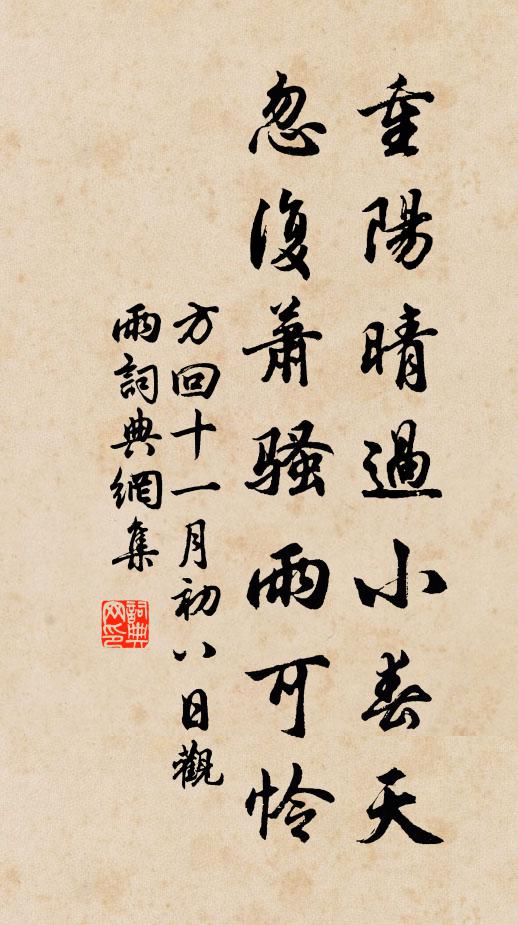 重陽晴過小春天
忽復蕭騷雨可憐
方回十一月初八日觀
雨詞典網集
詞典網印